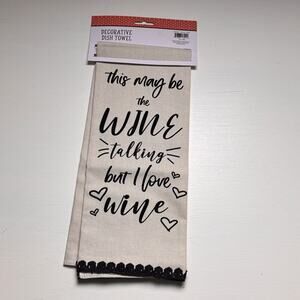 DECORATIVE
DISH TOWEL
this may be
the
WINE
talking
but I love
wine